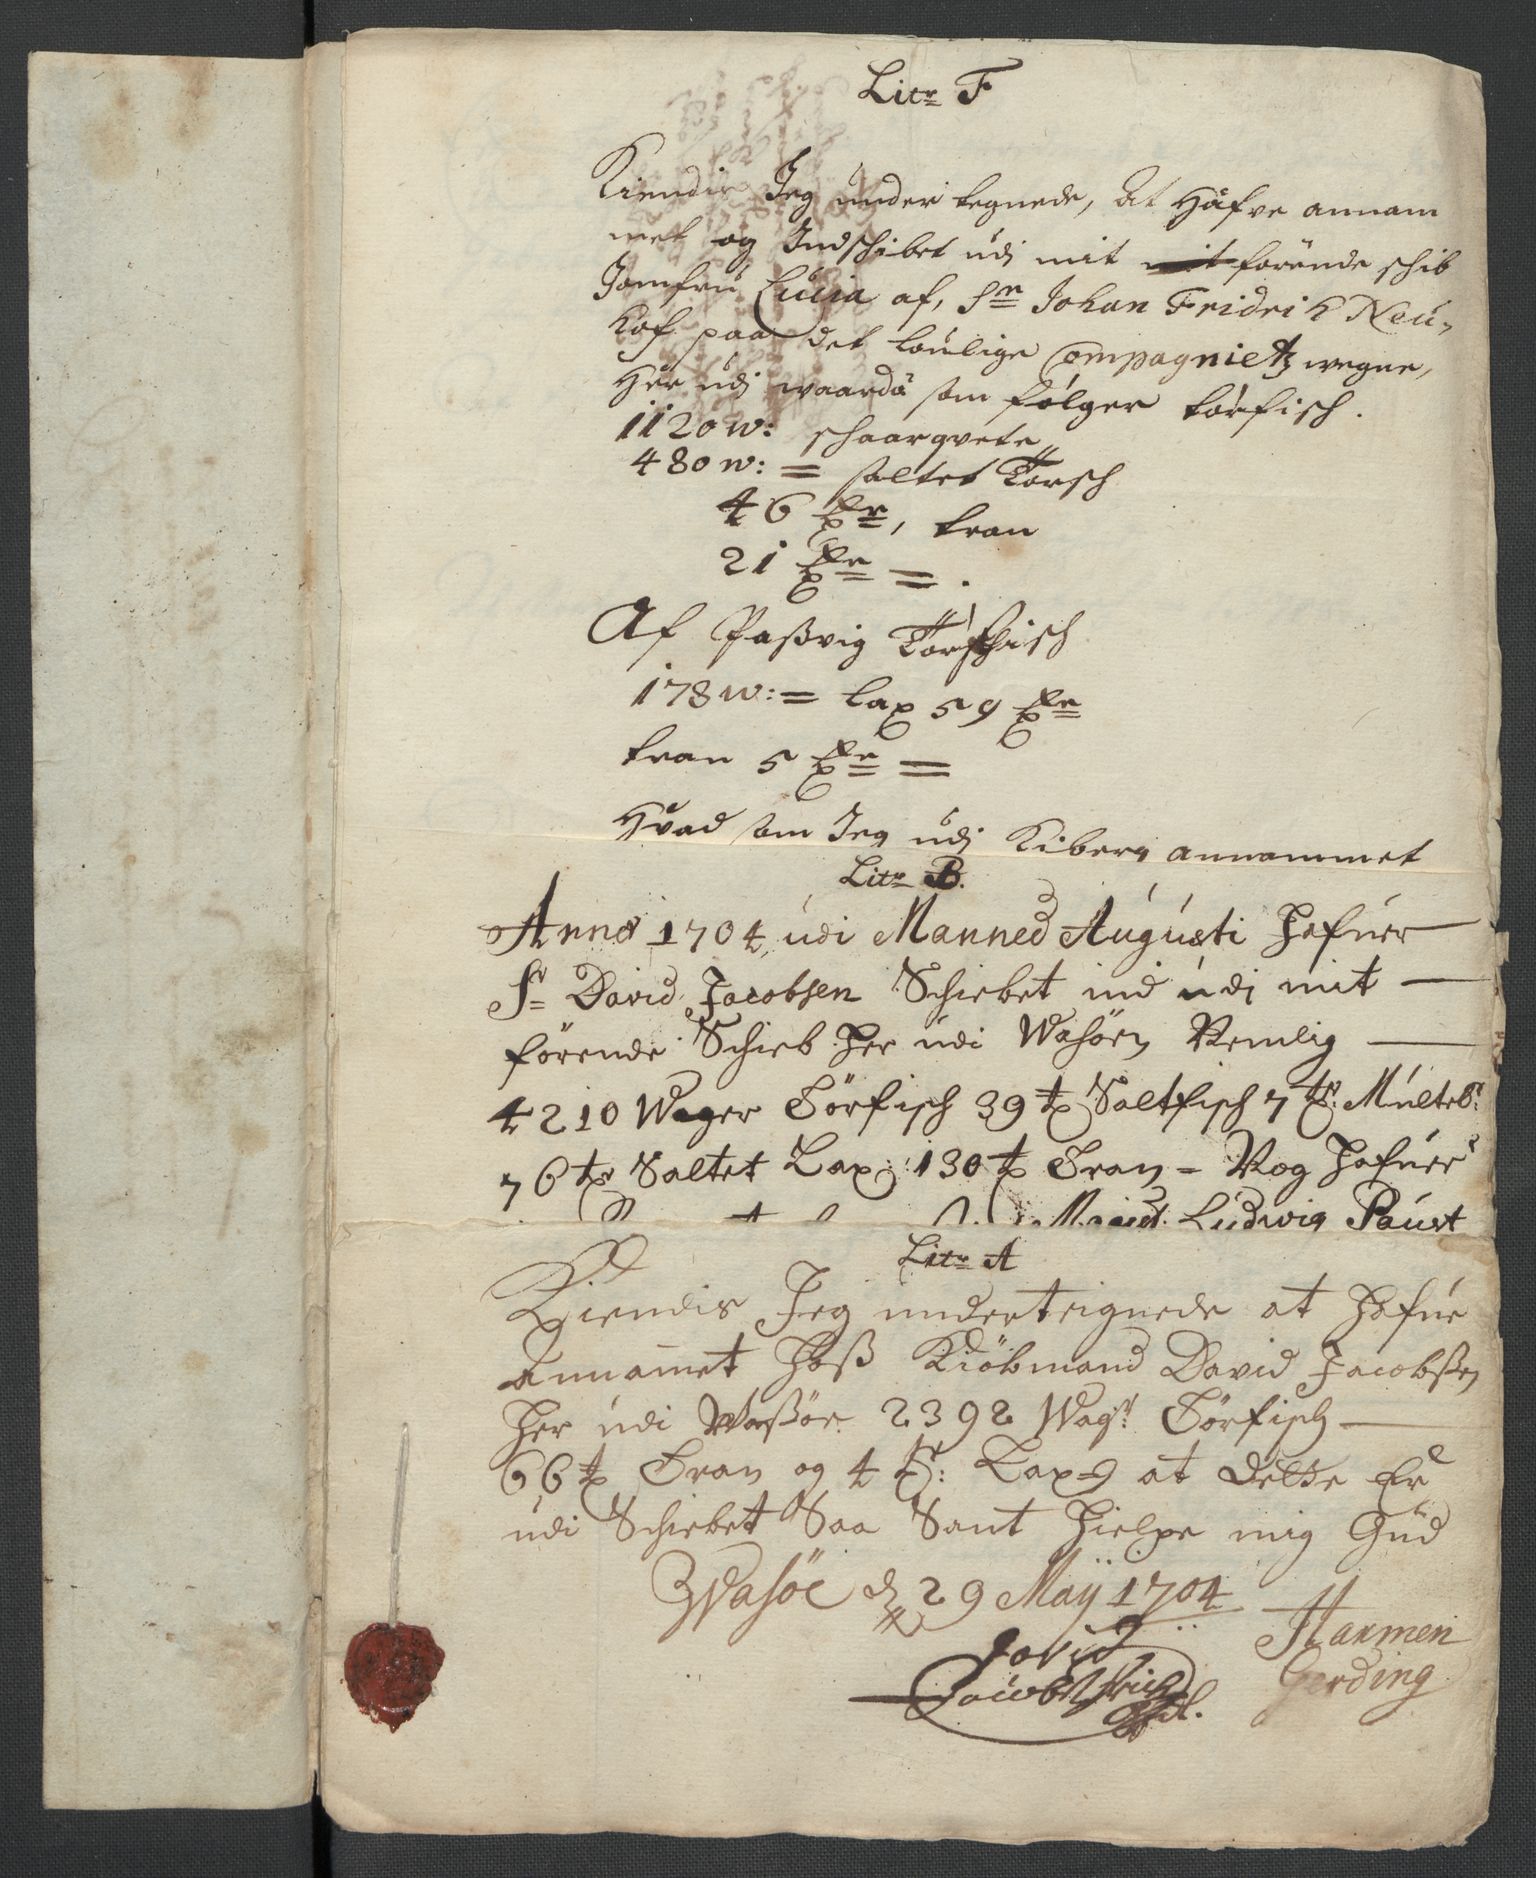 Litr F
Kiendis Jeg under tegnede, At Hafve annam
met og Indschibet udj mit mit förende schib
Jomfru Lucia af, Sr Johan Fridrih Neu-
hof paa det loulige Compagnietz wegne,
Her udj waardö som fölger törfisch.
1120 w: schaarqvete
480 w: = saltet Torsch
46 tr, tran
21 tr = .
Af Paßvig Törfhisch
178 w: = lax 59 tr
tran 5 tr =
Hvad som Jeg udj Kiberg annammet
Litr B.
Anno 1704 udi Manned Augusti hafuer
Sr David Jacobsen Schiebet ind udj mit
förende Schieb her udi Wasöen Nemlig
4210 Woger Törfisch 39 t Saltfisch 7 tr: Múlteb:
76 tr Saltet Lax: 130 t Tran - Nog hafuer
Ludwig Paust
Litr A
Kiendis Jeg underteignede at hafue
Annamet hoß Kiöbmand David Jacobßen
her udi Waßöe 2392 Wog: Törfisch
66 t Tran og 4 t: Lax at dette Er
udi Schiebet Saa Sant hielpe mig Gud
Wasöe d 29 Maij 1704
Harmen
David
Gerding
Jacobs